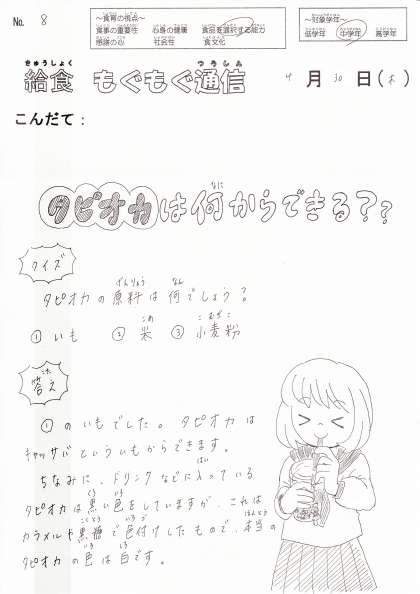 No. 8
～食育の視点～
食事の重要性 心身の健康 食品を選択する能力
感謝の心 社会性 食文化
～対象学年～
低学年 中学年 高学年
給食 もぐもぐ通信
きゅうしょく つうしん
月 30 日(木)
こんだて：
タピオカは何からできる??
なに
クイズ
げんりょう なん
タピオカの原料は何でしょう？
こめ こむぎこ
① いも ② 米 ③ 小麦粉
こた
答え
①のいもでした。タピオカは
キャッサバといういもからできます。
はい
ちなみに、ドリンクなどに入っている
くろ いろ
タピオカは黒い色をしていますが、これは
こくとう いろづ ほんとう
カラメルや黒糖で色付けしたもので、本当の
いろ しろ
タピオカの色は白です。